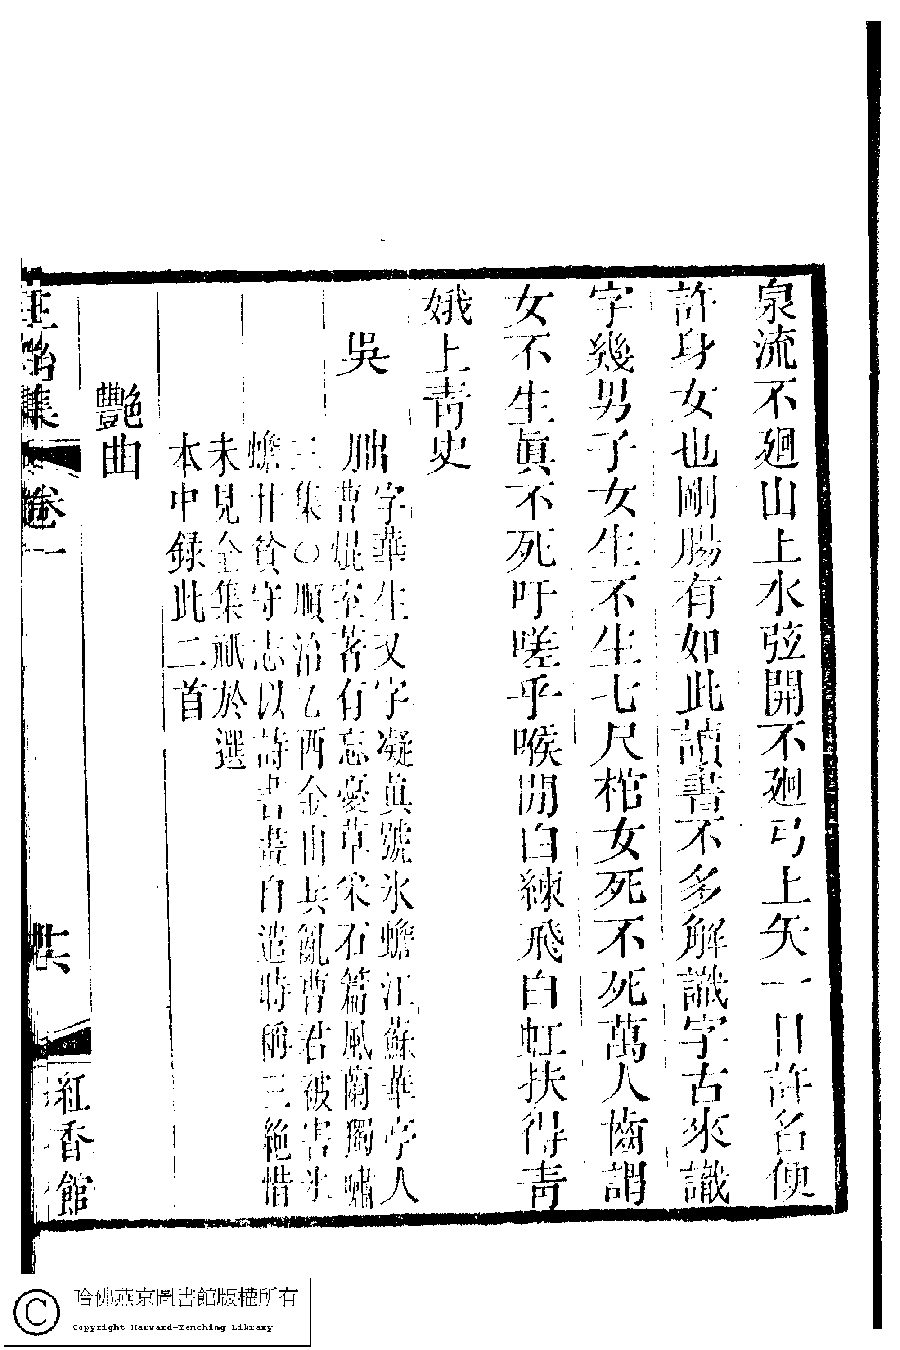 泉流不廻山上水弦開不廻弓上矢一日許名便
許身女也剛腸有如此讀書不多解識字古來識
字幾男子女生不生七尺棺女死不死萬人齒謂
女不生眞不死吁嗟乎喉間白練飛白虹扶得靑
娥上靑史
吳朏
字華生又字凝眞號氷蟾江蘇華亭人
曹焜室著有忘憂草采石篇風蘭獨嘯
三集○順治乙酉金山兵亂曹君被害氷
蟾甘貧守志以詩書畫自遣時稱三絶惜
未見全集祇於選
本中録此二首
艷曲
集 卷一
紅香館
哈佛燕京圖書館版權所有
Copyright Harvard-Yenching Library